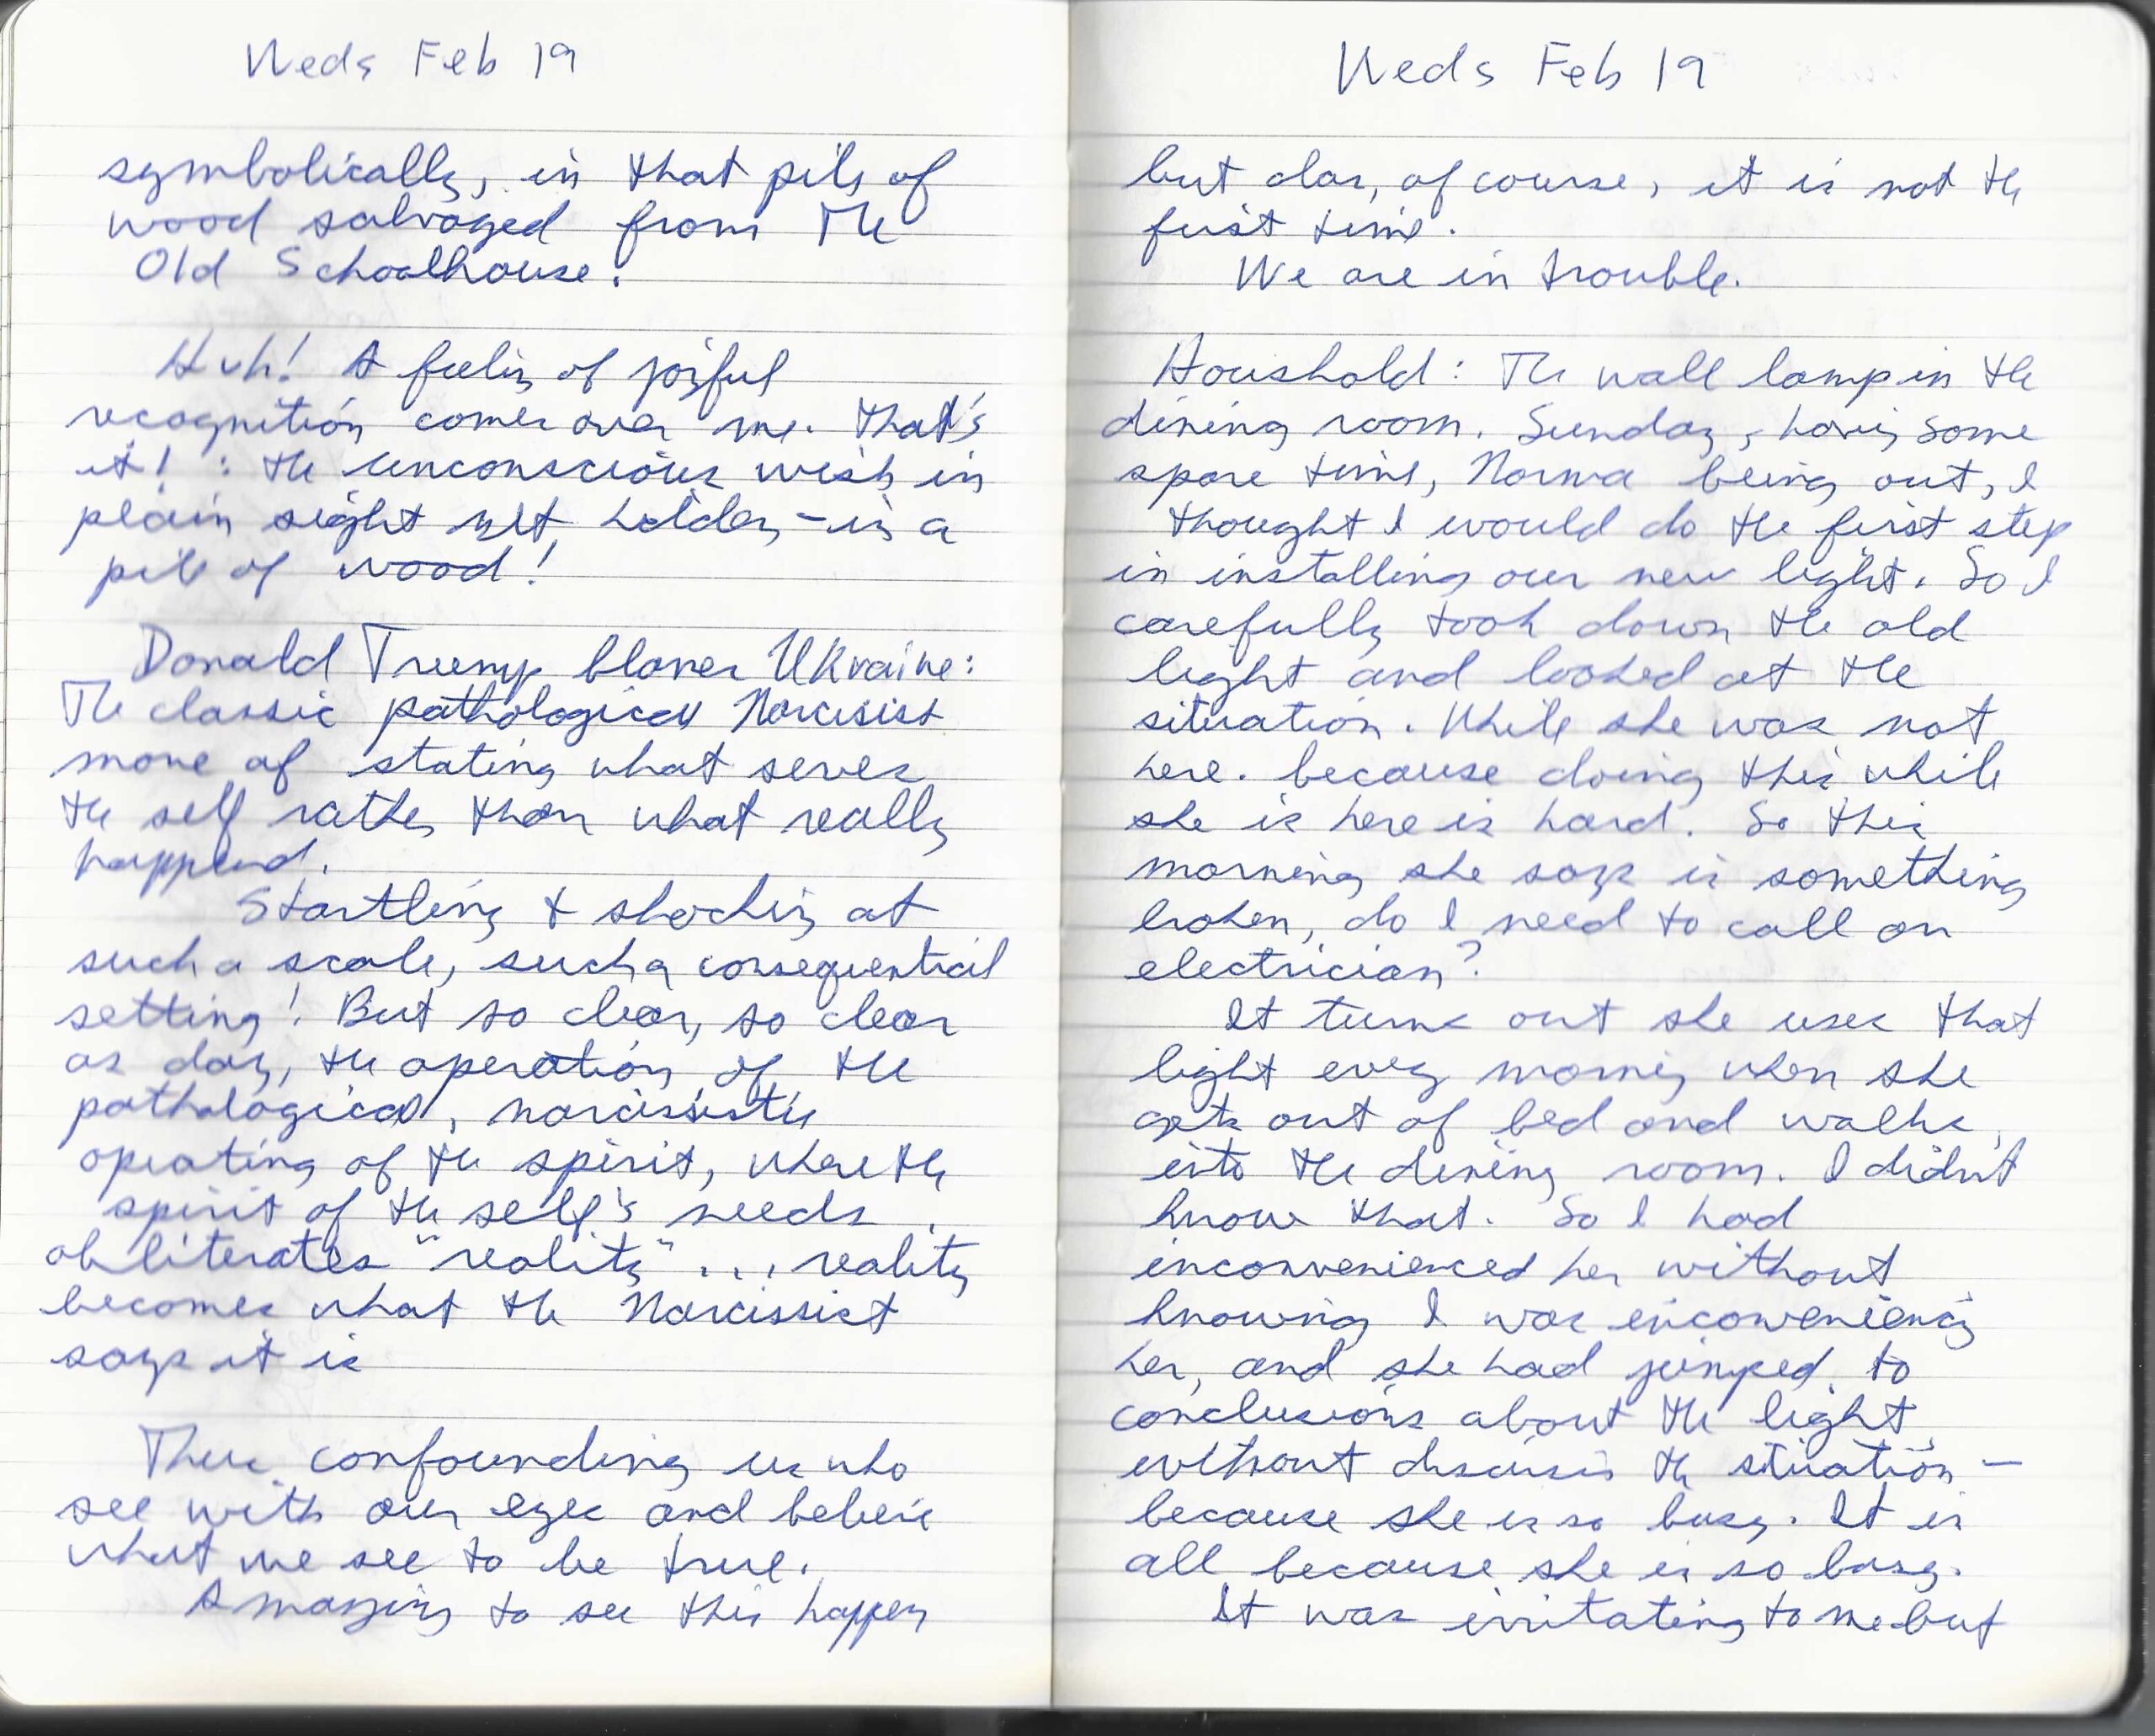 Weds Feb 19
symbolically, in that pile of
wood salvaged from the
Old Schoolhouse.
Huh! A feeling of joyful
recognition comes over me. That's
it! : the unconscious wish in
plain sight yet hidden – in a
pile of wood!
Donald Trump blames Ukraine:
The classic pathological Narcissist
move of stating what serves
the self rather than what really
happend.
Startling & shocking at
such a scale, such a consequential
setting! But so clear, so clear
as day, the operation of the
pathological, narcissistic
operating of the spirit, where the
spirit of the self's needs
obliterates "reality" ... reality
becomes what the Narcissist
says it is
Thus confounding us who
see with our eyes and believe
what we see to be true.
Amazing to see this happen
Weds Feb 19
but alas, of course, it is not the
first time.
We are in trouble.
Houshold: The wall lamp in the
dining room. Sunday, having some
spare time, Norma being out, I
thought I would do the first step
in installing our new light. So I
carefully took down the old
light and looked at the
situation. While she was not
here. because doing this while
she is here is hard. So this
morning she says is something
broken, do I need to call an
electrician?
It turns out she uses that
light every morning when she
gets out of bed and walks
into the dining room. I didn't
know that. So I had
inconvenienced her without
knowing I was inconveniencing
her, and she had jumped to
conclusions about the light
without discussing the situation –
because she is so busy. It is
all because she is so busy.
It was irritating to me but